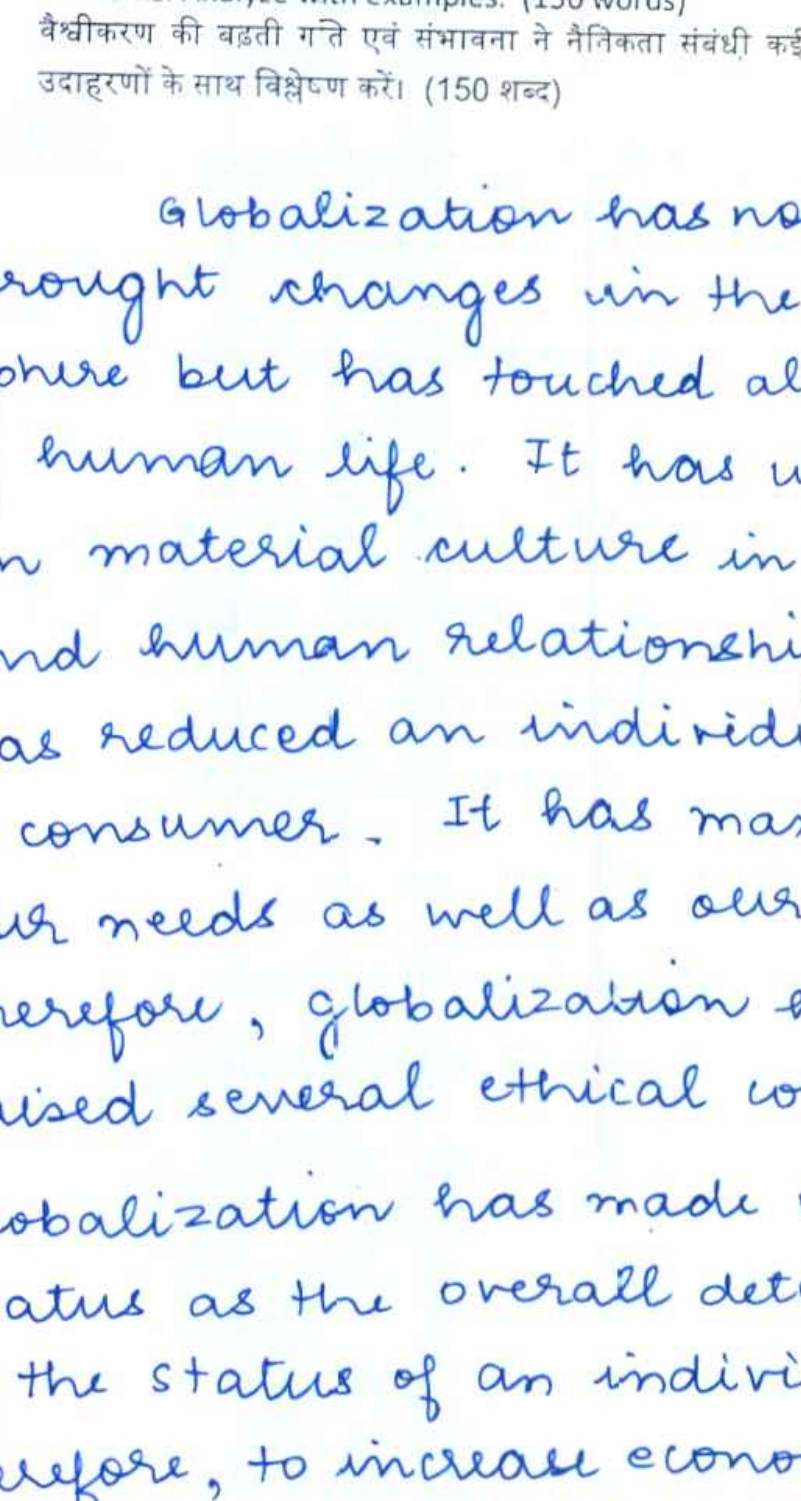 with examples. (150 words)
वैश्वीकरण की बढ़ती गति एवं संभावना ने नैतिकता संबंधी कई
उदाहरणों के साथ विश्लेषण करें। (150 शब्द)
Globalization has no
rought changes in the
phere but has touched al
human life. It has u
n material culture in
nd human relationshi
as reduced an individu
consumer. It has mar
ur needs as well as our
herefore, globalization h
aised several ethical co
obalization has made
atus as the overall det
the status of an indivi
erefore, to increase econo